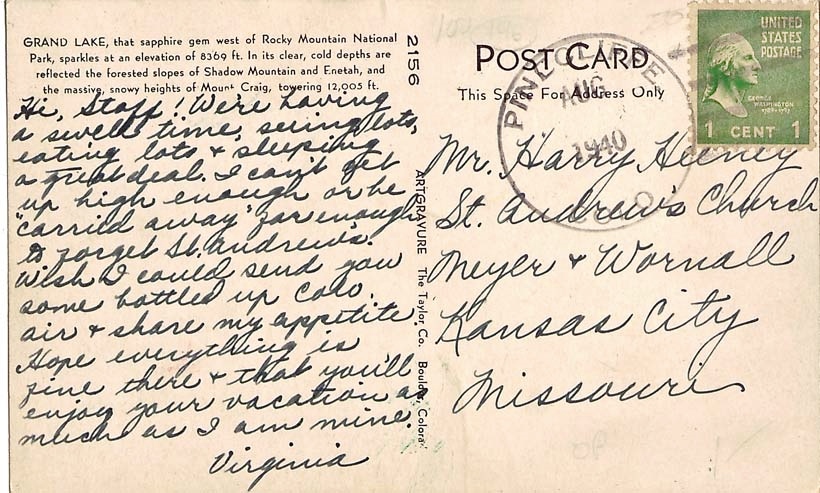 GRAND LAKE, that sapphire gem west of Rocky Mountain National
Park, sparkles at an elevation of 8369 ft. In its clear, cold depths are
reflected the forested slopes of Shadow Mountain and Enetah, and
the massive, snowy heights of Mount Craig, towering 12,005 ft.
Hi, Staff! We're having
a swell time, seeing lots,
eating lots & sleeping
a great deal. I can't get
up high enough or be
"carried away" far enough
to forget St. Andrew's.
Wish I could send you
some bottled up Colo.
air & share my appetite
Hope everything is
fine there & that you'll
enjoy your vacation as
much as I am mine.
Virginia
2156
ARTGRAVURE The Taylor Co. Boulder, Colorado
POST CARD
This Space For Address Only
PINECLIFFE
AUG
1940
COLO.
UNITED
STATES
POSTAGE
GEORGE
WASHINGTON
1 CENT 1
Mr. Harry Heeney
St. Andrew's Church
Meyer & Wornall
Kansas City
Missouri